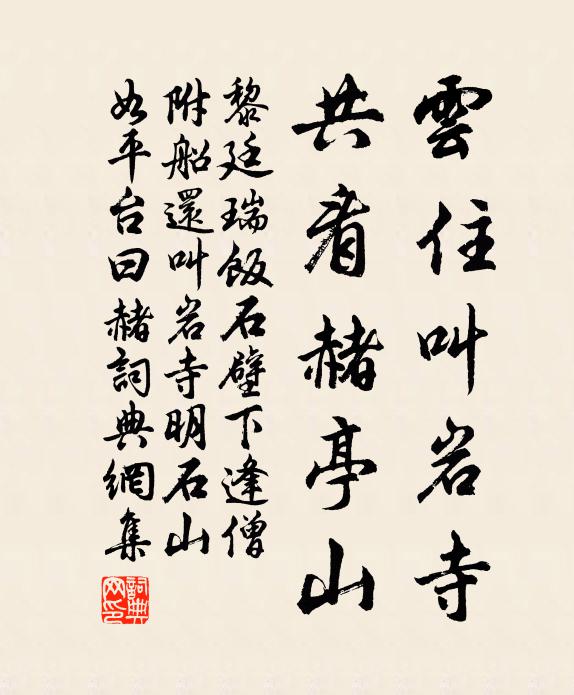 雲住叫岩寺
共看赭亭山
黎廷瑞飯石壁下逢僧
附船還叫岩寺明石山
如平台曰赭詞典網集
詞典網印